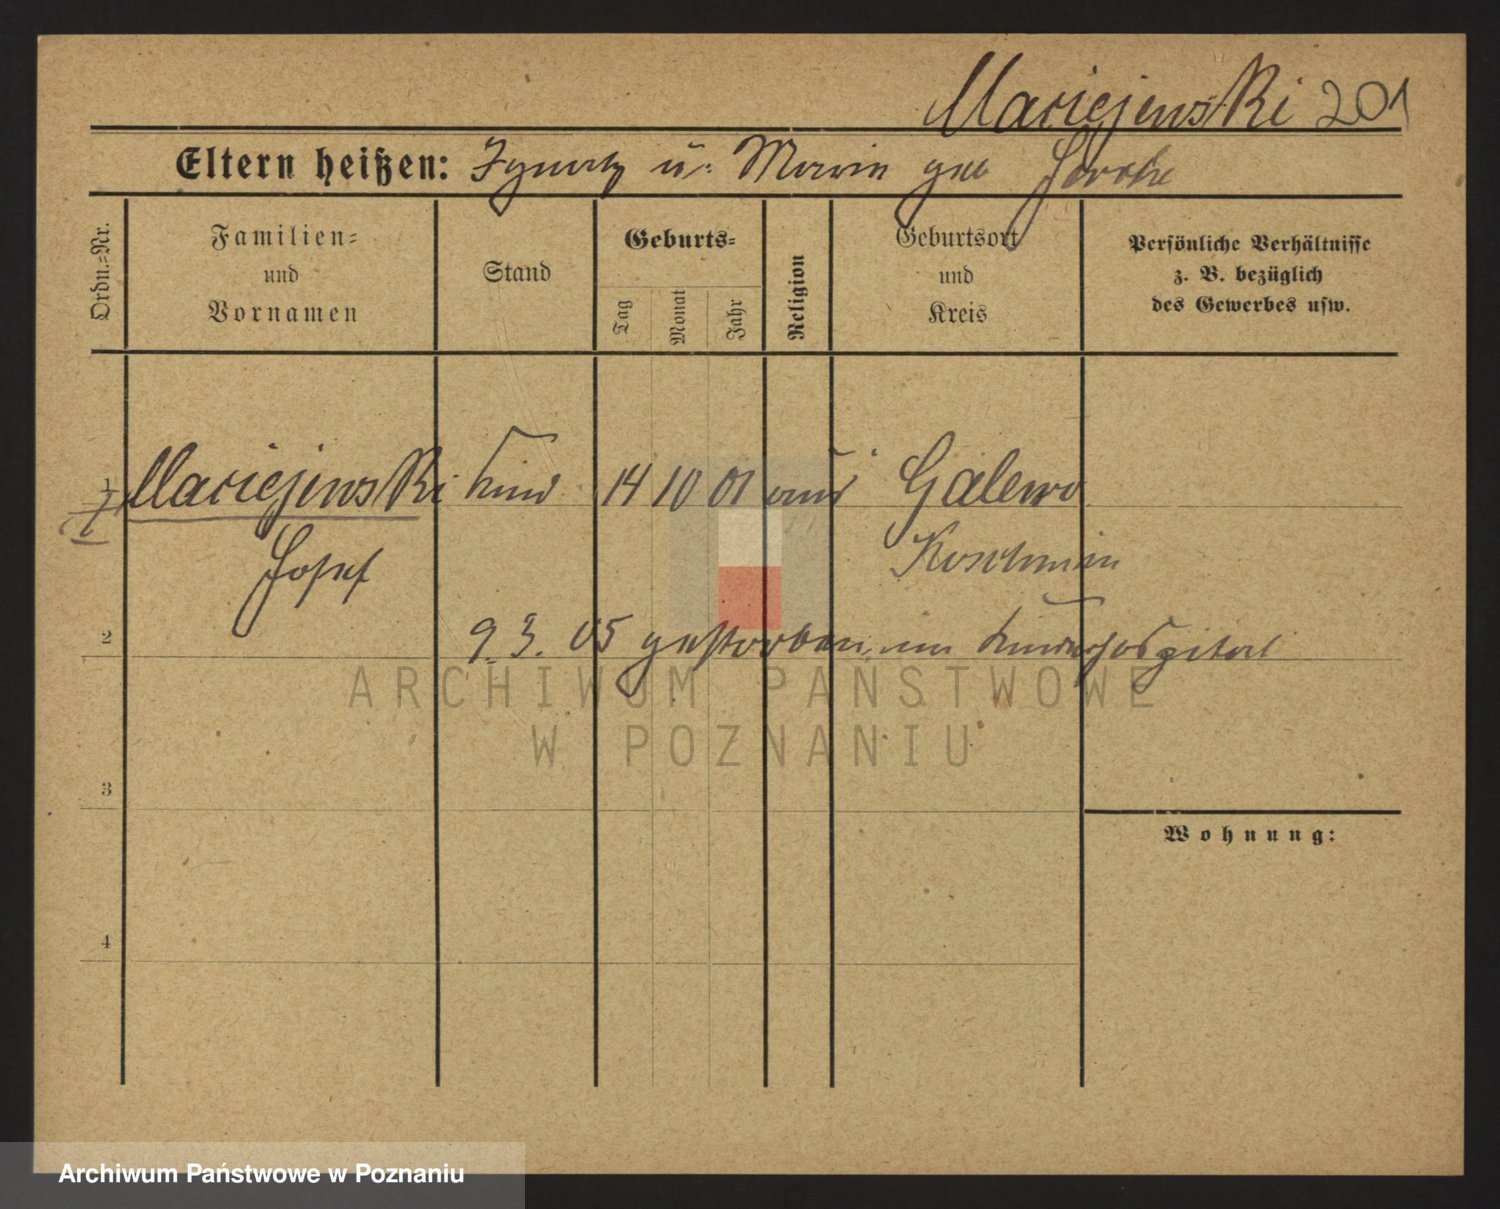 Maciejewski 201
Eltern heißen: Ignatz u. Maria geb
Ordn.=Nr.
Familien=
und
Vornamen
Stand
Geburts=
Tag
Monat
Jahr
Religion
Geburtsort
und
Kreis
Persönliche Verhältnisse
z. B. bezüglich
des Gewerbes usw.
1 Maciejewski Kind 14 10 01 Galewo
Josef Koschmin
2
9. 3. 05 gestorben im Kinderhospital
ARCHIWUM PAŃSTWOWE
W POZNANIU
3
Wohnung:
4
Archiwum Państwowe w Poznaniu